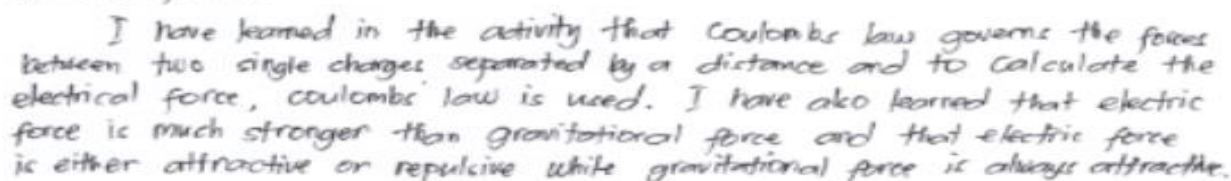 I have learned in the activity that Coulombs law governs the forces
between two single charges separated by a distance and to calculate the
electrical force, coulombs' law is used. I have also learned that electric
force is much stronger than gravitational force and that electric force
is either attractive or repulsive while gravitational force is always attractive.